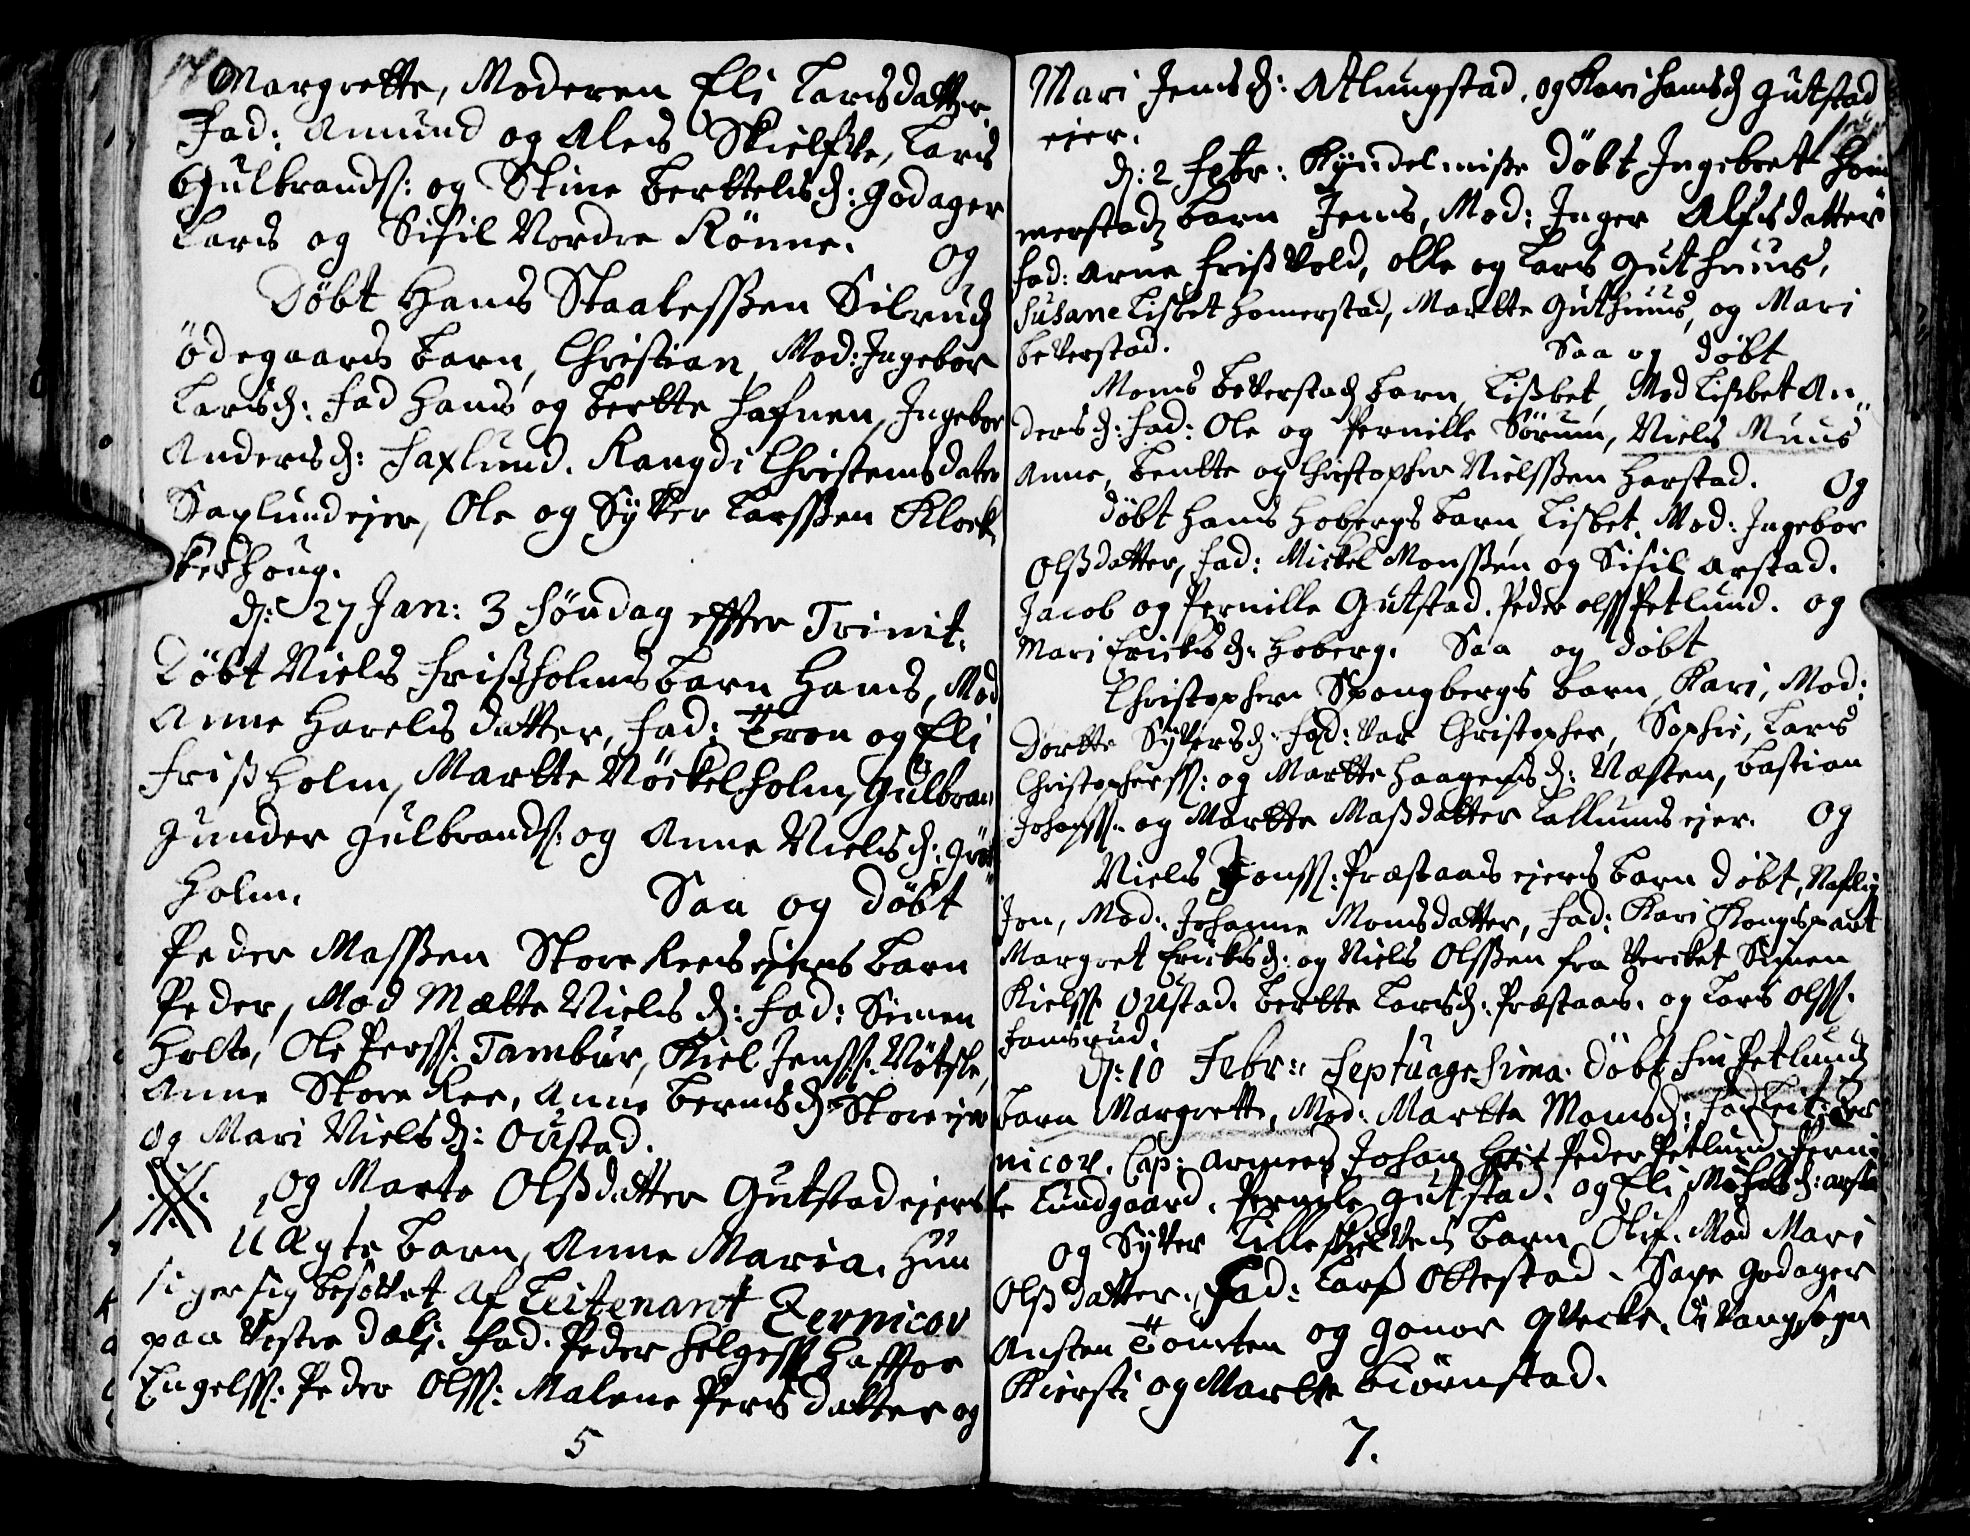 Margrette, Moderen Eli Larsdatter.
Fad: Amund og Ales Skielsve, Lars
Gulbrands: og Stine Berttelsd: Godager
Lars og Sisil Nordre Rönne. og
Döbt Hans Staalessßen Silrud
ödegaards barn, Christian, Mod: Ingebor
Larsd: fad Hans og Bertte Hafnen, Ingebor
Andersd: Saxlund. Rangdi Christensdater
Saxlundejer, Ole og Syver Larsßen Klock
kerhoug.
d: 27 Jan: 3 Söndag effter Trinit:
Döbt Niels Frißholms barn Hans, Mod
Anne Harelsdatter, fad: Tron og Eli
Frißholm, Martte Nöckelholm, Gulbran
Gunder Gulbrands: og Anne Nielsd:
holm. Saa og döbt
Peder Massßen Store Rees ejers barn
Peder, Mod Mætte Nielsd: fad: Simen
Holte, Ole Perss: Tambur, Kiel Jenss: Nötsle,
Anne Store Ree, Anne Berntsd: Store ejer
og Mari Nielsd: Oustad.
og Marte Olßdatter Gutstadejers
uægte barn, Anne Maria. Hun
siger sig besovet af Leitenant Zernicov
paa Vestre Dalj. fad: Peder Helgess Haffor
Engelss: Peder Olss: Malene Persdatter og
5
Mari Jensd: Atlungstad, og Kari Hansd Gutstad
ejer.
d: 2 Febr: Kyndelmiße döbt Ingebret Hom
merstads barn Jens, Mod: Inger Alfsdatter
fad: Arne Frißvold, Olle og Lars Guthuus,
Susane Lisbet Homerstad, Martte Guthuus, og Mari
beverstad. Saa og döbt
Mons Beverstads barn, Lißbet, Mod Lisbet An
dersd: fad: Ole og Pernille Sörum, Niels Muus
Anne, Bentte og Christopher Nielsßen Harstad. Og
döbt Hans Hobergs barn, Lisbet. Mod: Ingebor
Olßdatter, fad: Mickel Monsßen og Sisil Arstad.
Jacob og Pernille Gutstad. Peder olss Petlund. og
Mari Ericksd: Hoberg. Saa og döbt
Christophern Spangbergs barn Kari, Mod:
Dortte Syversd: fad: var Christopher, Sophie, Lars
Christopherss: og Martte Haagensd: Næsten, Bastian
Johanss: og Martte Maßdatter Lallums ejer. Og
Niels Jonss: Præstaas ejers barn döbt, Naflig
Jon, Mod: Johanne Monsdatter, fad: Kari Kongspart
Margret Ericksd: og Niels Olsßen fra Vercket Simen
Kielss. Oustad. Bertte Larsd: Præstaas. og Lars Olss.
Hamsrud.
d: 10 Febr: Septuagesima. döbt Petlunds
barn Margrette, Mod: Martta Monsd: fad Leit: Zer
nicov. Cap: Johan Peder Petlund Perni
le Lundgaard. Pernile Gutstad. og Eli
og Syver Lilleskielvens barn Olif. Mod Mari
Olßdatter. Fad: Larß Ottestad. Saxe Godager
Ansten Tomten og Gonor Qvecke. i Vangsogn
Kiersti og Martte Biörnstad.
7.